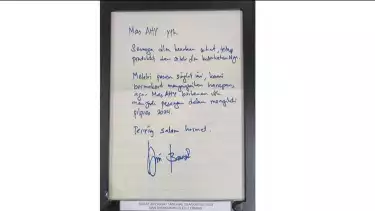 Mas AHY yth
Semoga dlm keadaan sehat, tetap
produktif dan selalu dlm
Melalui pesan singkat ini, kami
bermaksud menyampaikan harapan
agar Mas AHY berkenan utk
menjadi pasangan dalam mengikuti
pilpres 2024.
Teriring salam hormat.